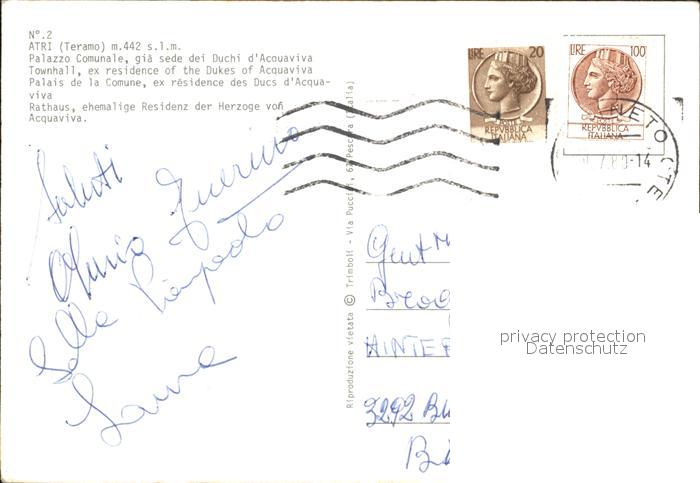 N°.2
ATRI (Teramo) m.442 s.l.m.
Palazzo Comunale, già sede dei Duchi d'Acquaviva
Townhall, ex residence of the Dukes of Acquaviva
Palais de la Comune, ex résidence des Ducs d'Acqua-
viva
Rathaus, ehemalige Residenz der Herzoge von
Acquaviva.
LIRE 20
POSTE
REPVBBLICA
ITALIANA
LIRE 100
REPVBBLICA
ITALIANA
NETO (TE
7.80-14
Saluti
Guerino
Pierpaolo
Riproduzione vietata © Trimboli - Via Puccini, 6 Pescara (Italia)
Gent
HINTER
3292
privacy protection
Datenschutz